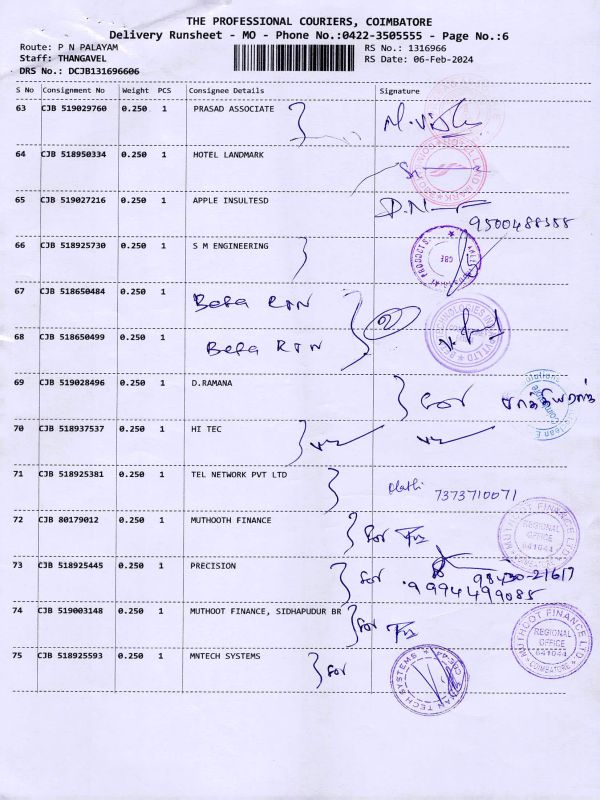 THE PROFESSIONAL COURIERS, COIMBATORE
Delivery Runsheet - MO - Phone No.:0422-3505555 - Page No.:6
Route: P N PALAYAM
RS No.: 1316966
Staff: THANGAVEL
RS Date: 06-Feb-2024
DRS No.: DCJB131696606
S No Consignment No Weight PCS Consignee Details Signature
63 CJB 519029760 0.250 1 PRASAD ASSOCIATE
64 CJB 518950334 0.250 1 HOTEL LANDMARK
65 CJB 519027216 0.250 1 APPLE INSULTESD
9500488358
66 CJB 518925730 0.250 1 S M ENGINEERING
67 CJB 518650484 0.250 1 Beta RTN
68 CJB 518650499 0.250 1 Beta RTN
69 CJB 519028496 0.250 1 D.RAMANA for
70 CJB 518937537 0.250 1 HI TEC
71 CJB 518925381 0.250 1 TEL NETWORK PVT LTD
7373710071
72 CJB 80179012 0.250 1 MUTHOOTH FINANCE for
MUTHOOT FINANCE LTD
REGIONAL
OFFICE
641044
73 CJB 518925445 0.250 1 PRECISION for
98430-21617
9994499085
74 CJB 519003148 0.250 1 MUTHOOT FINANCE, SIDHAPUDUR BR for
MUTHOOT FINANCE LTD
REGIONAL
OFFICE
641044
COIMBATORE
75 CJB 518925593 0.250 1 MNTECH SYSTEMS for
TECH SYSTEMS